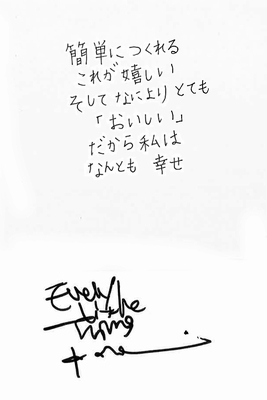 簡単につくれる
これが嬉しい
そして なにより とても
「おいしい」
だから 私は
なんとも 幸せ